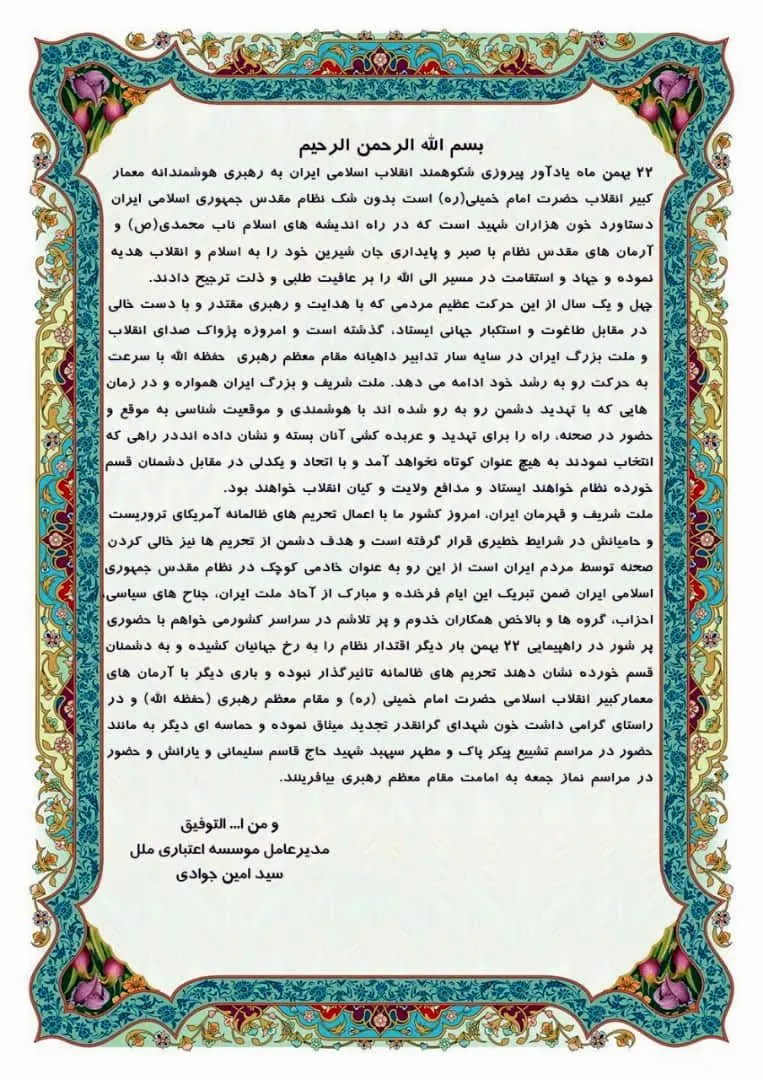 بسم الله الرحمن الرحیم
۲۲ بهمن ماه یادآور پیروزی شکوهمند انقلاب اسلامی ایران به رهبری هوشمندانه معمار
کبیر انقلاب حضرت امام خمینی(ره) است بدون شک نظام مقدس جمهوری اسلامی ایران
دستاورد خون هزاران شهید است که در راه اندیشه های اسلام ناب محمدی(ص) و
آرمان های مقدس نظام با صبر و پایداری جان شیرین خود را به اسلام و انقلاب هدیه
نموده و جهاد و استقامت در مسیر الی الله را بر عافیت طلبی و ذلت ترجیح دادند.
چهل و یک سال از این حرکت عظیم مردمی که با هدایت و رهبری مقتدر و با دست خالی
در مقابل طاغوت و استکبار جهانی ایستاد، گذشته است و امروزه پژواک صدای انقلاب
و ملت بزرگ ایران در سایه سار تدابیر داهیانه مقام معظم رهبری حفظه الله با سرعت
به حرکت رو به رشد خود ادامه می دهد. ملت شریف و بزرگ ایران همواره و در زمان
هایی که با تهدید دشمن رو به رو شده اند با هوشمندی و موقعیت شناسی به موقع و
حضور در صحنه، راه را برای تهدید و عربده کشی آنان بسته و نشان داده انددر راهی که
انتخاب نمودند به هیچ عنوان کوتاه نخواهد آمد و با اتحاد و یکدلی در مقابل دشمنان قسم
خورده نظام خواهند ایستاد و مدافع ولایت و کیان انقلاب خواهند بود.
ملت شریف و قهرمان ایران، امروز کشور ما با اعمال تحریم های ظالمانه آمریکای تروریست
و حامیانش در شرایط خطیری قرار گرفته است و هدف دشمن از تحریم ها نیز خالی کردن
صحنه توسط مردم ایران است از این رو به عنوان خادمی کوچک در نظام مقدس جمهوری
اسلامی ایران ضمن تبریک این ایام فرخنده و مبارک از آحاد ملت ایران، جناح های سیاسی،
احزاب، گروه ها و بالاخص همکاران خدوم و پر تلاشم در سراسر کشورمی خواهم با حضوری
پر شور در راهپیمایی ۲۲ بهمن بار دیگر اقتدار نظام را به رخ جهانیان کشیده و به دشمنان
قسم خورده نشان دهند تحریم های ظالمانه تاثیرگذار نبوده و باری دیگر با آرمان های
معمارکبیر انقلاب اسلامی حضرت امام خمینی (ره) و مقام معظم رهبری (حفظه الله) و در
راستای گرامی داشت خون شهدای گرانقدر تجدید میثاق نموده و حماسه ای دیگر به مانند
حضور در مراسم تشییع پیکر پاک و مطهر سپهبد شهید حاج قاسم سلیمانی و یارانش و حضور
در مراسم نماز جمعه به امامت مقام معظم رهبری بیافرینند.
و من ا... التوفیق
مدیرعامل موسسه اعتباری ملل
سید امین جوادی